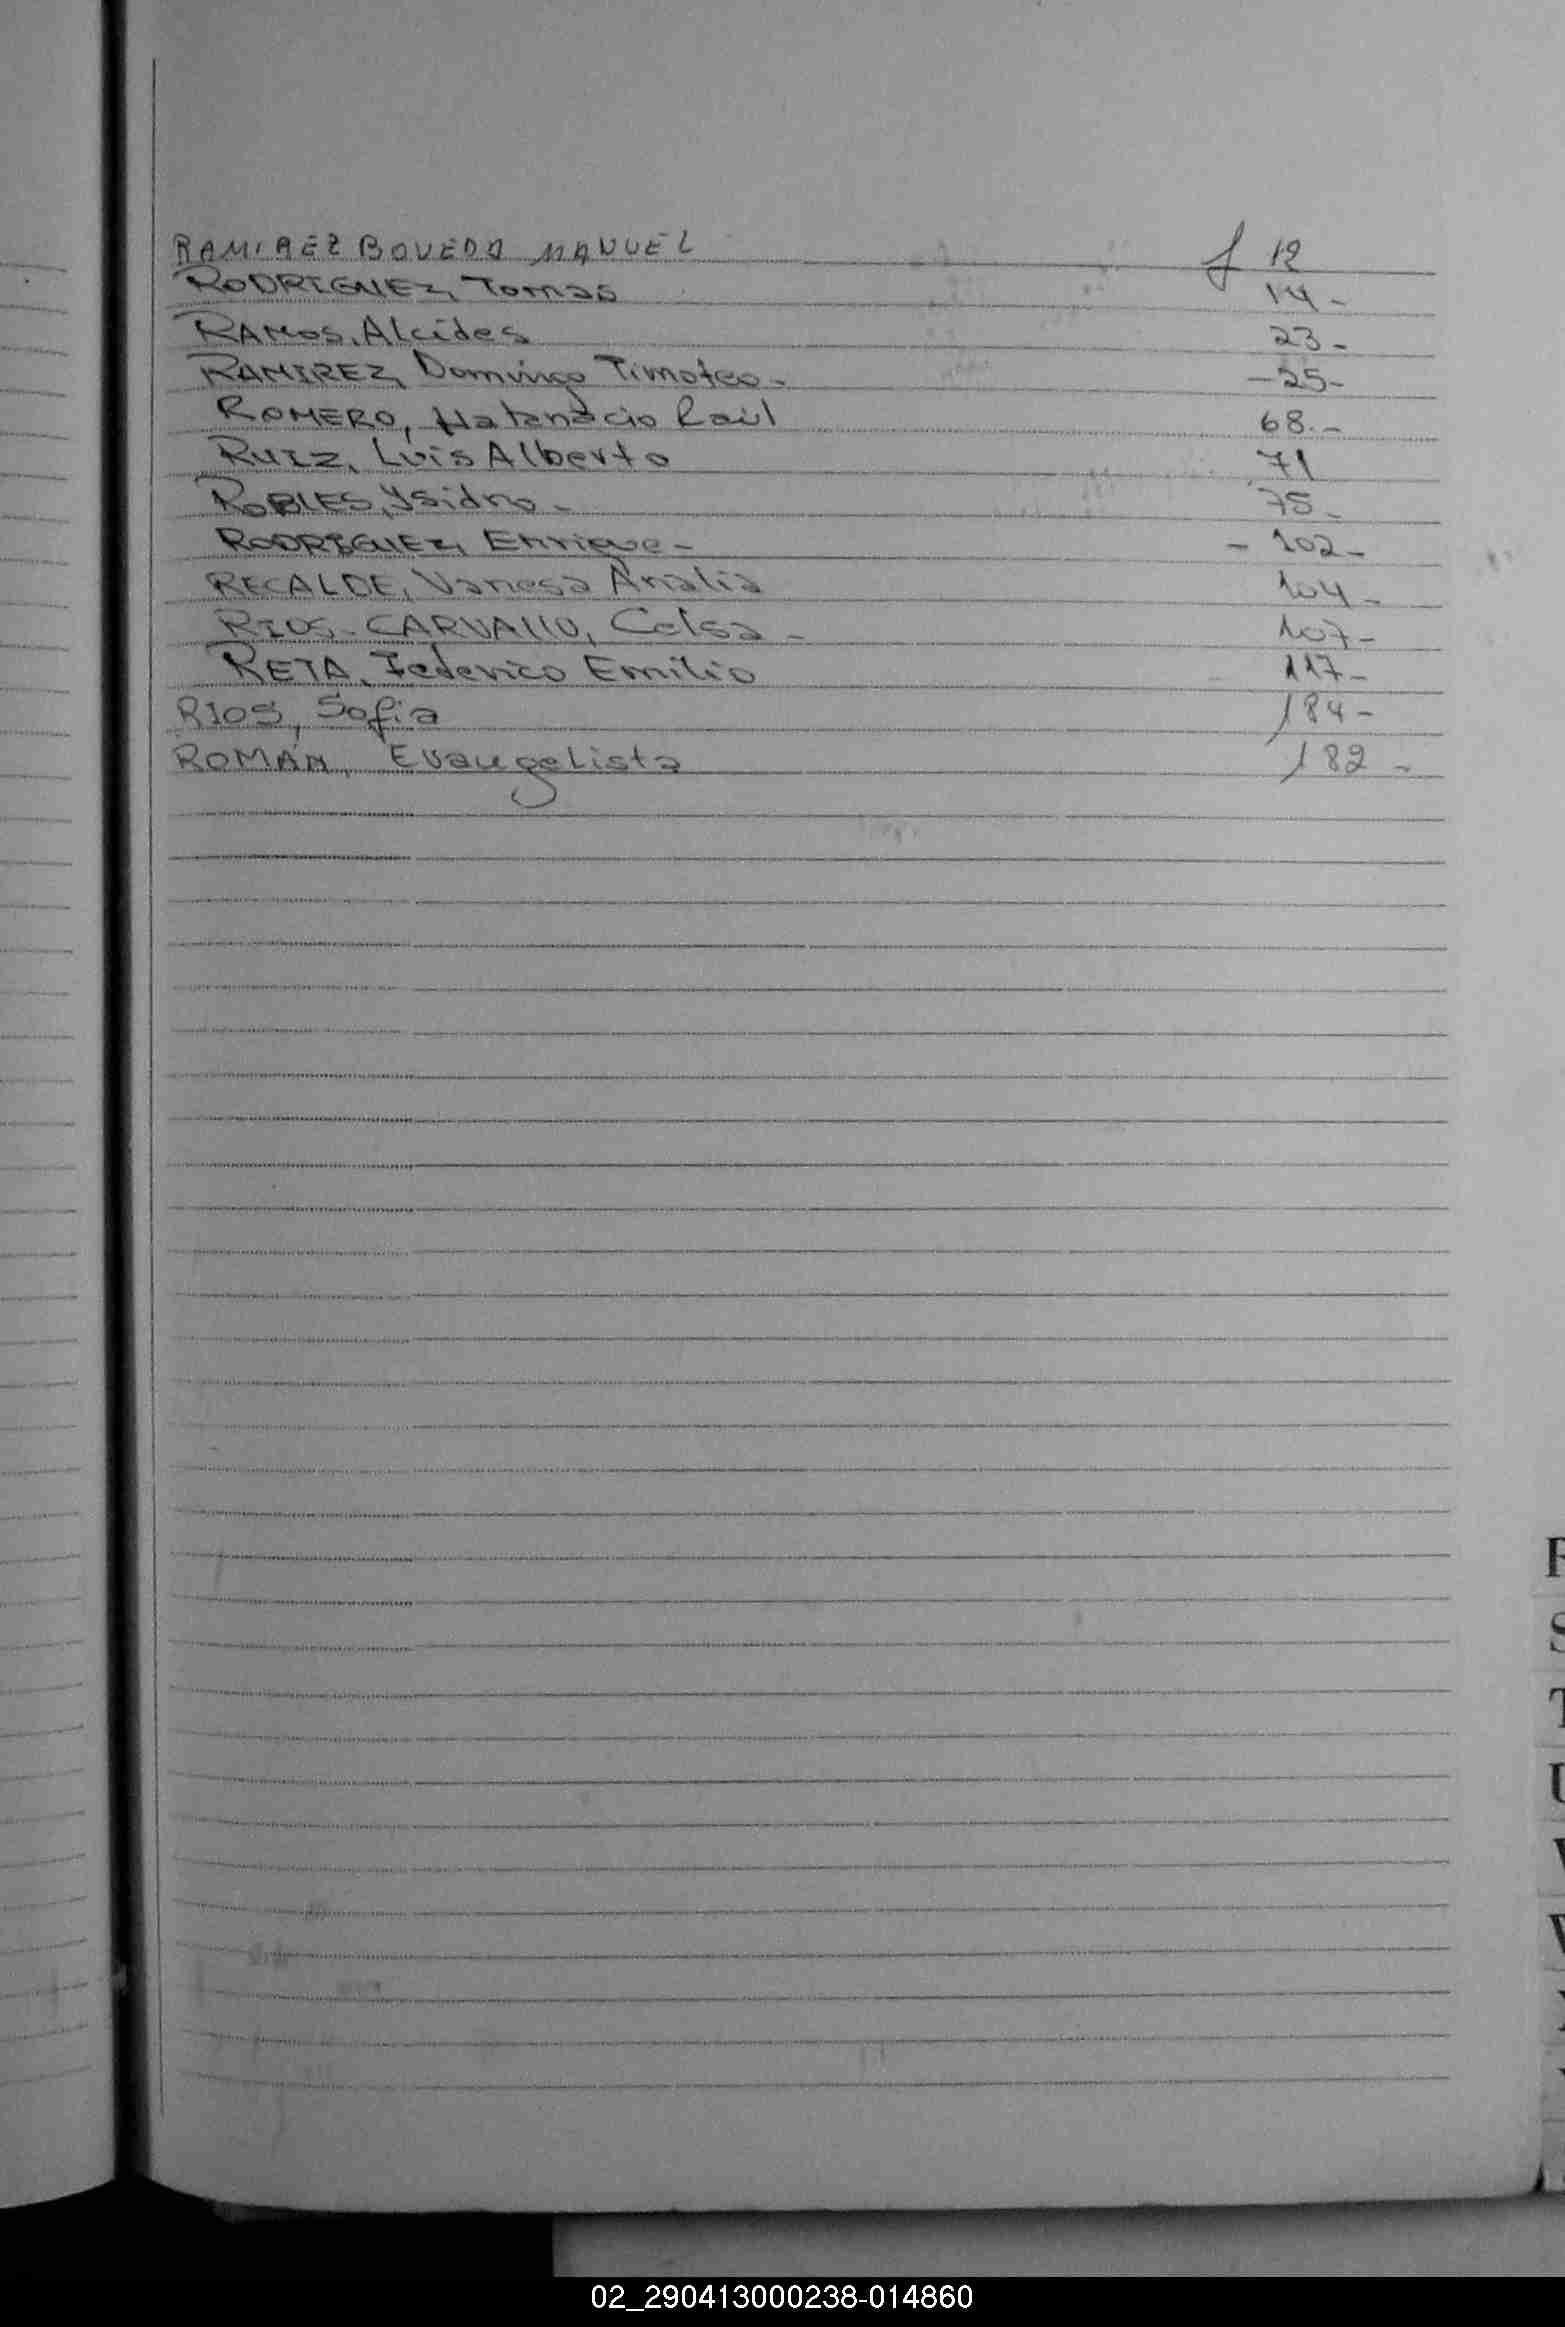 RAMIREZ BOVEDA MANUEL f 12
RODRIGUEZ, Tomas 14-
RAMOS, Alcides 23-
RAMIREZ, Domingo Timoteo- -25-
ROMERO, Raúl 68.-
RUIZ, Luis Alberto 71
ROBLES, Ysidro- 75-
RODRIGUEZ, Enrique- - 102-
RECALDE, Vanesa Analia 104-
RIOS-CARVALLO, Celsa- 107-
RETA, Federico Emilio 117-
RIOS, Sofia 184-
ROMÁN, Evangelista 182-
R
S
T
U
V
02_290413000238-014860